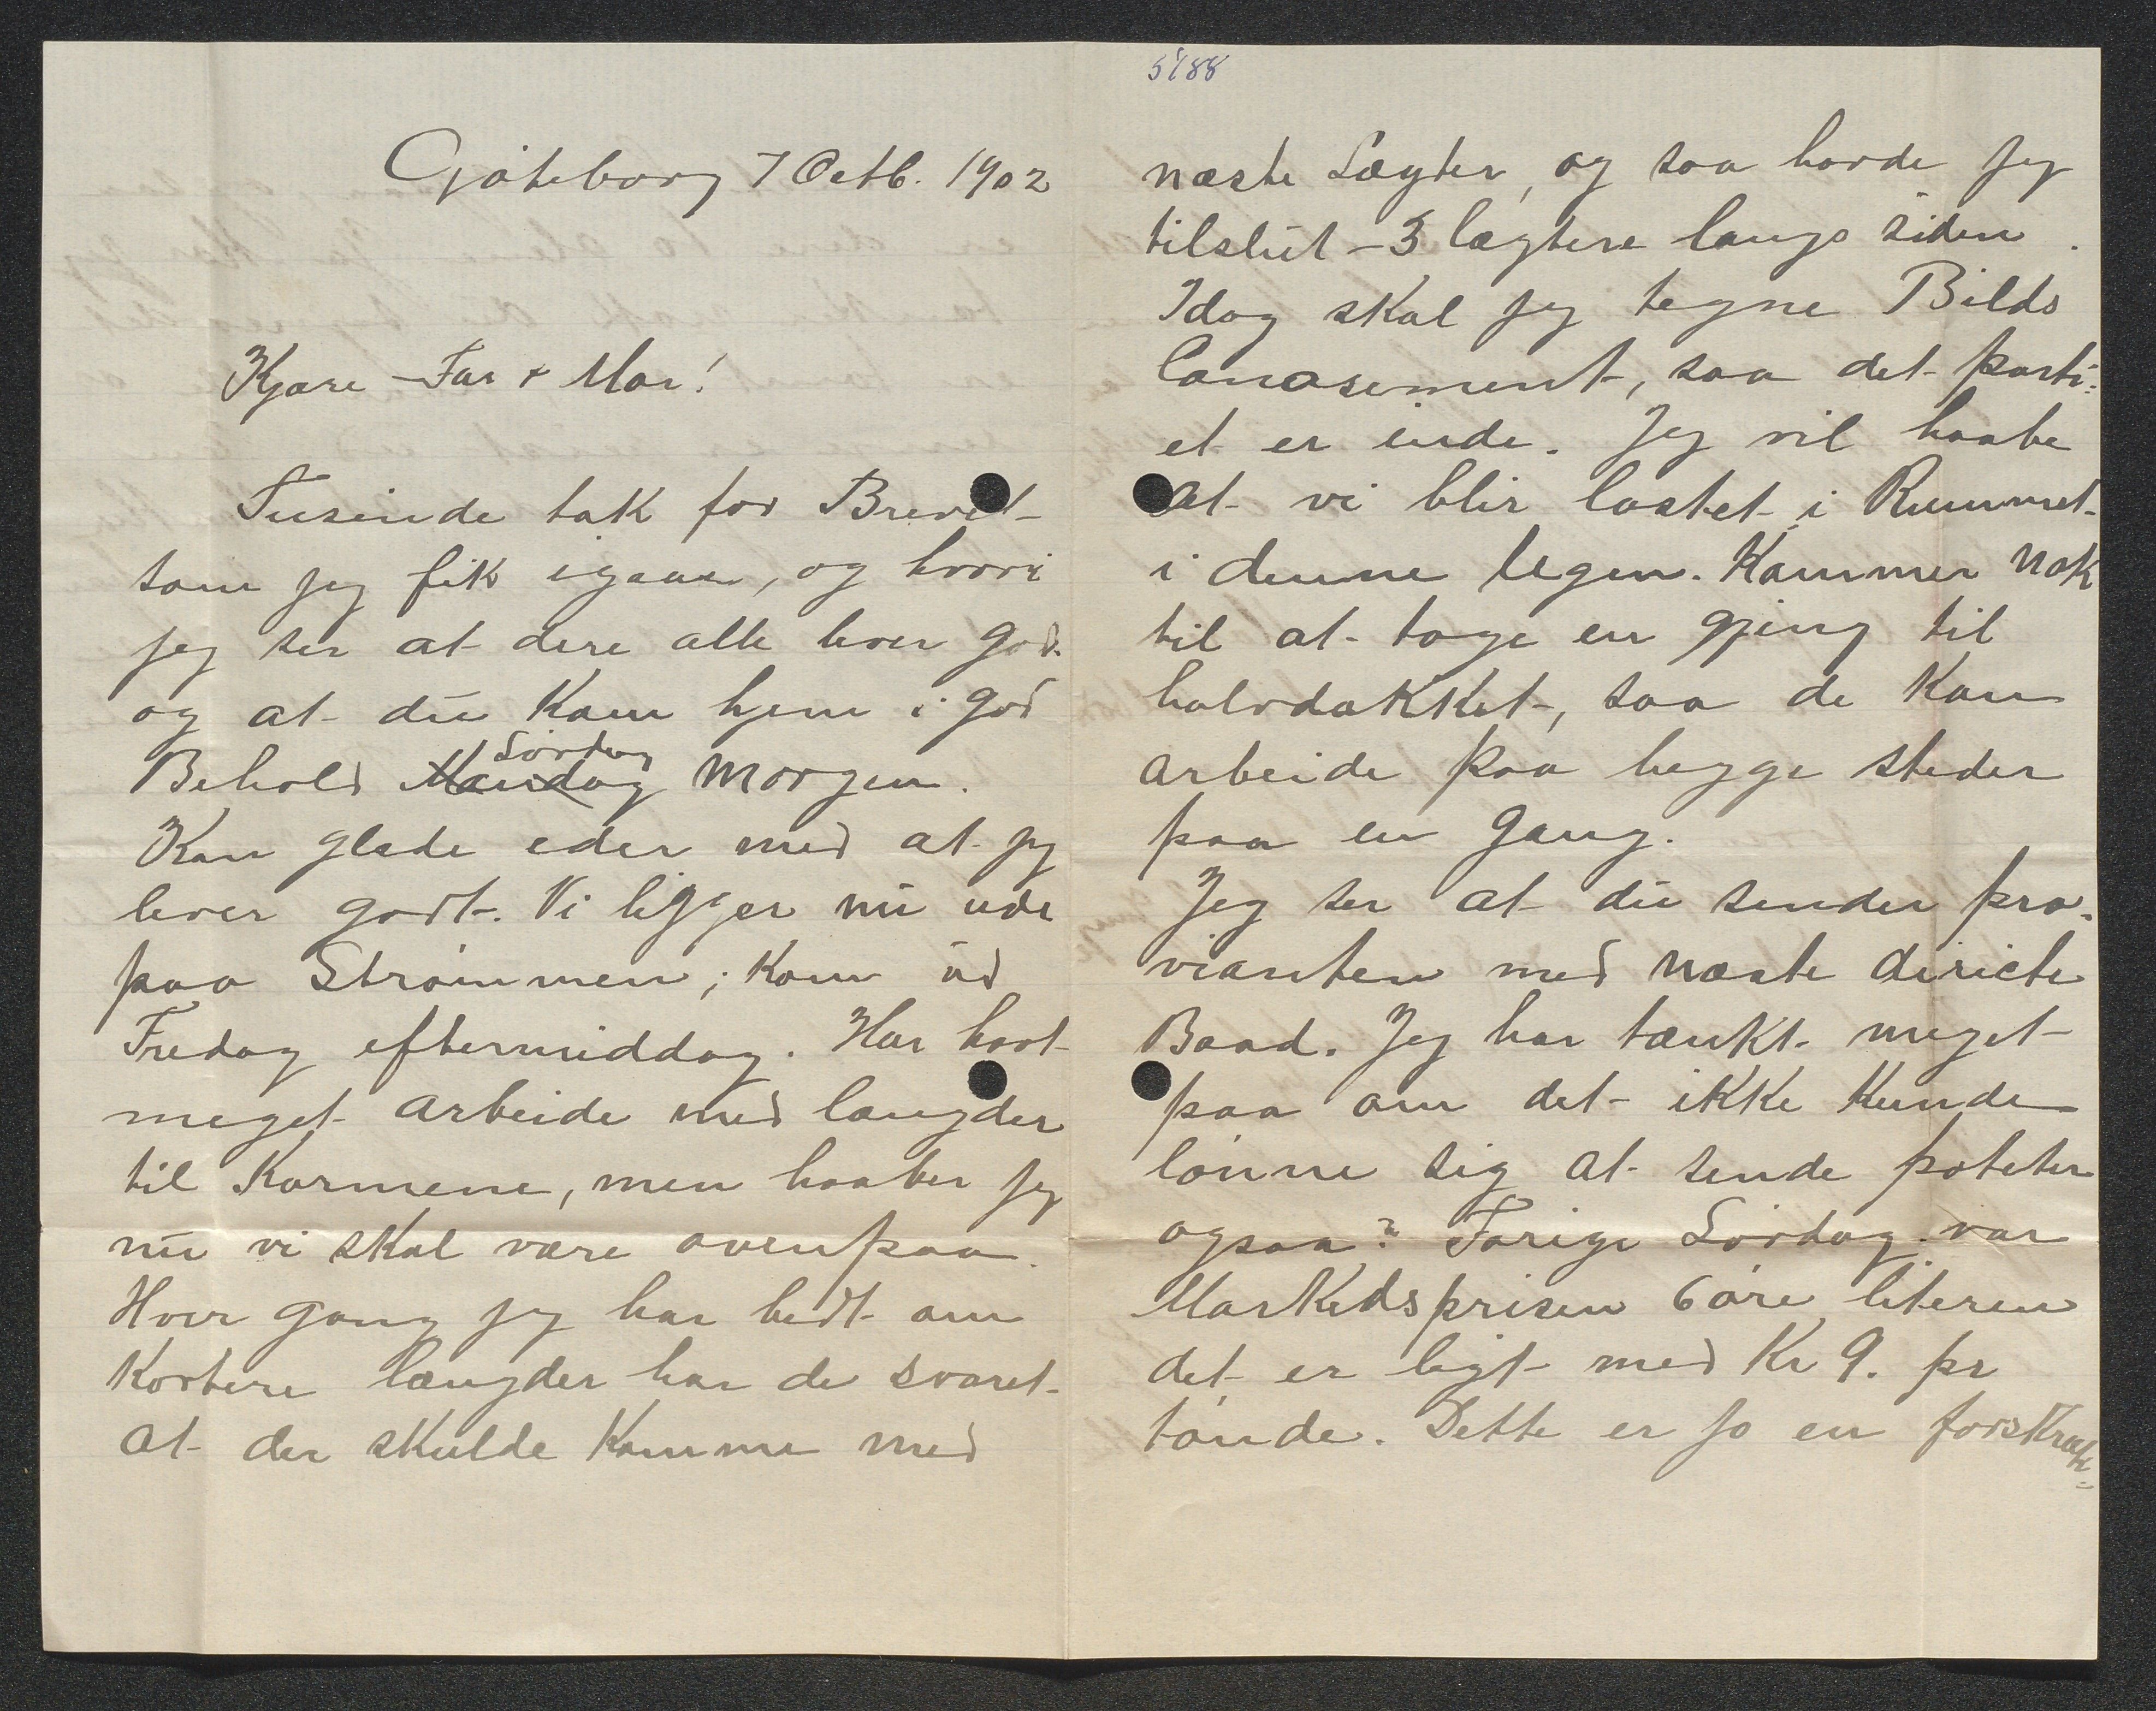 Gjøteborg 7 Octb. 1902
Kjære Far & Mor!
Tusinde tak for Brevet
som jeg fik igaar, og hvori
jeg ser at dere alle lever god.
og at du kom hjem i god
Behold Mandag Lørdag Morgen.
Kan glæde eder med at jeg
lever godt. Vi ligger nu ude
paa Strømmen; kom ud
Fredag eftermiddag. Har havt
meget arbeide med længder
til Karmene, men haaber jeg
nu vi skal være ovenpaa.
Hver gang jeg har bedt om
kortere længder har de svaret
at der skulde komme med
5188
næste Lægter, og saa havde jeg
tilslut 3 lægtere langs siden.
Idag skal jeg tegne Bilds
Conosement, saa det parti-
et er inde. Jeg vil haabe
at vi blir lastet i Rummet
i denne Ugen. Kommer nok
til at tage en gjeng til
halvdækket, saa de kan
arbeide paa begge steder
paa en Gang.
Jeg ser at du sender pro-
vianten med næste directe
Baad. Jeg har tænkt meget
paa om det ikke kunde
lønne sig at sende poteter
ogsaa? Forige Lørdag var
Markedsprisen 6 øre literen
det er ligt med Kr 9. pr
tønde. Dette er jo en forskræk-